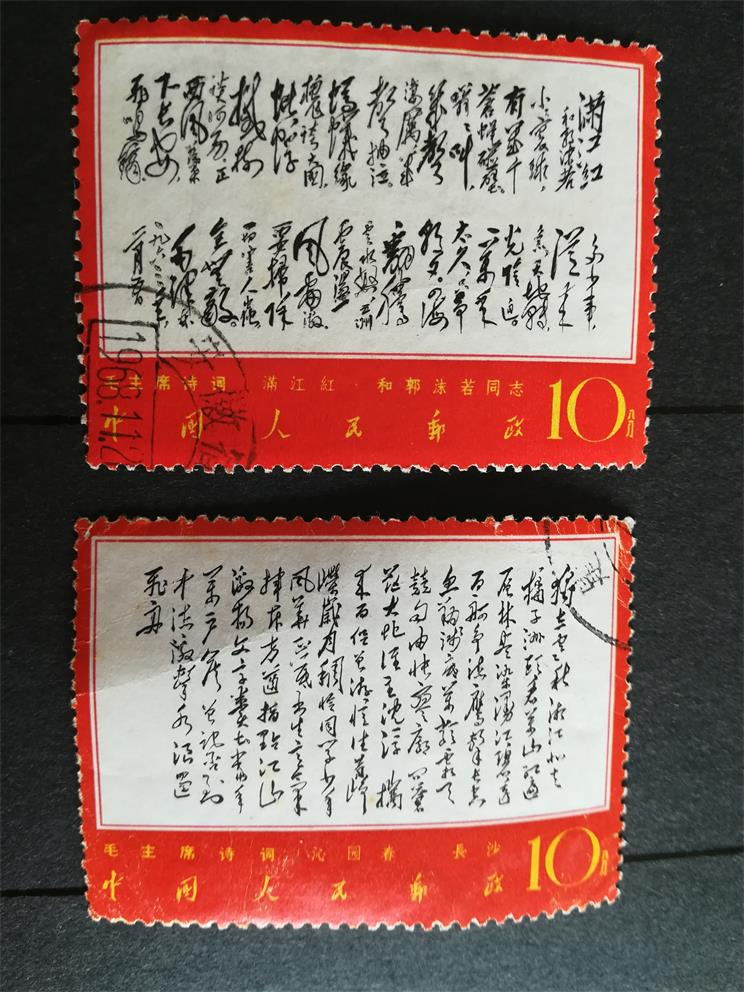 满江红
和郭沫若
小小寰球,
有几个
苍蝇碰壁。
嗡嗡叫,
几声
凄厉,几
声抽泣。
蚂蚁缘
槐夸大国,
蚍蜉
撼树
谈何易。正
西风落叶
下长安,
飞鸣镝。
多少事,
从来
急;天地转,
光阴迫。
一万年
太久,只争
朝夕。四海
翻腾
云水怒,五洲
震荡
风雷激。
要扫除
一切害人虫,
全无敌。
毛泽东
一九六三年
一月九日
毛主席诗词 滿江紅 和郭沫若同志
中國人民郵政 10分
1968.1.12
独立寒秋 湘江北去
橘子洲头 看万山红遍
层林尽染 漫江碧透
百舸争流 鹰击长空
鱼翔浅底 万类霜天
竞自由 怅寥廓 问苍
茫大地 谁主沉浮 携
来百侣曾游 忆往昔峥
嵘岁月稠 恰同学少年
风华正茂 书生意气
挥斥方遒 指點江山
激扬文字 粪土当年
万户侯 曾记否 到
中流激水 浪遏
飞舟
毛主席诗词 沁园春 長沙
中國人民郵政 10分